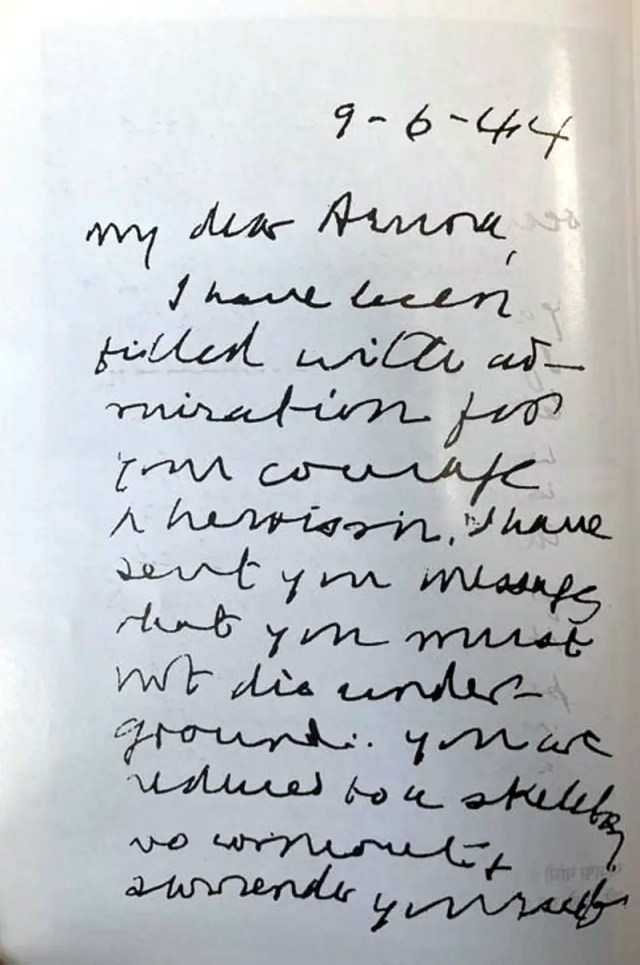 9-6-44
my dear Aruna,
I have been
filled with ad-
miration for
your courage
& heroism. I have
sent you messages
that you must
not die under-
ground. you are
reduced to a skeleton
Do come out &
surrender yourself